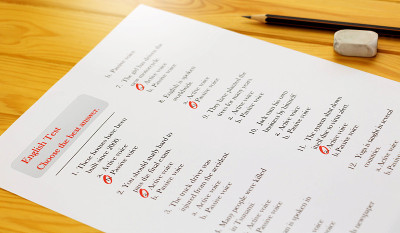 English Test
Choose the best answer.
1. These houses have been
built since 2000.
a. Active voice
b. Passive voice
2. You should study hard to
pass the final exam.
a. Active voice
b. Passive voice
3. The truck driver was
injured from the accident.
a. Active voice
b. Passive voice
4. Many people were killed
in Tsunami.
Active voice
Passive voice
is spoken in
b. Passive voice
7. The girl has driven this
a. Active voice
b. Passive voice
8. English is spoken
worldwide.
a. Active voice
b. Passive voice
9. They have planted the
trees for many years.
a. Active voice
b. Passive voice
10. Jack must be
himself.
a. Active voice
b. Passive voice
11. The system also
a. Active voice
b. Passive voice
12. Yoga is taught in several
countries.
a. Active
b. Passive
newspaper